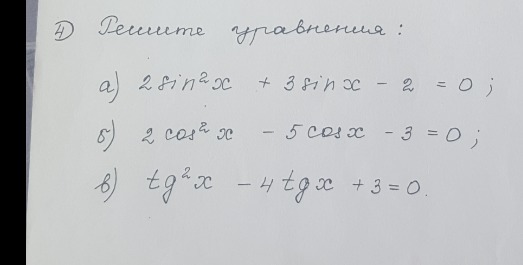 4) Решите уравнения:
а) 2 sin²x + 3 sin x - 2 = 0;
б) 2 cos²x - 5 cos x - 3 = 0;
в) tg²x - 4 tg x + 3 = 0.